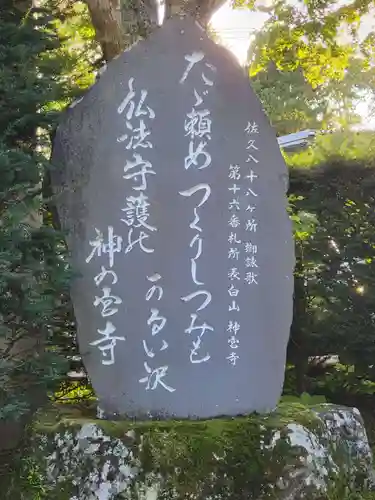 佐久八十八ケ所 御詠歌
第十六番札所 長白山 神宮寺
たゞ頼め つくりしつみも
のるい沢
仏法守護の
神の宮寺